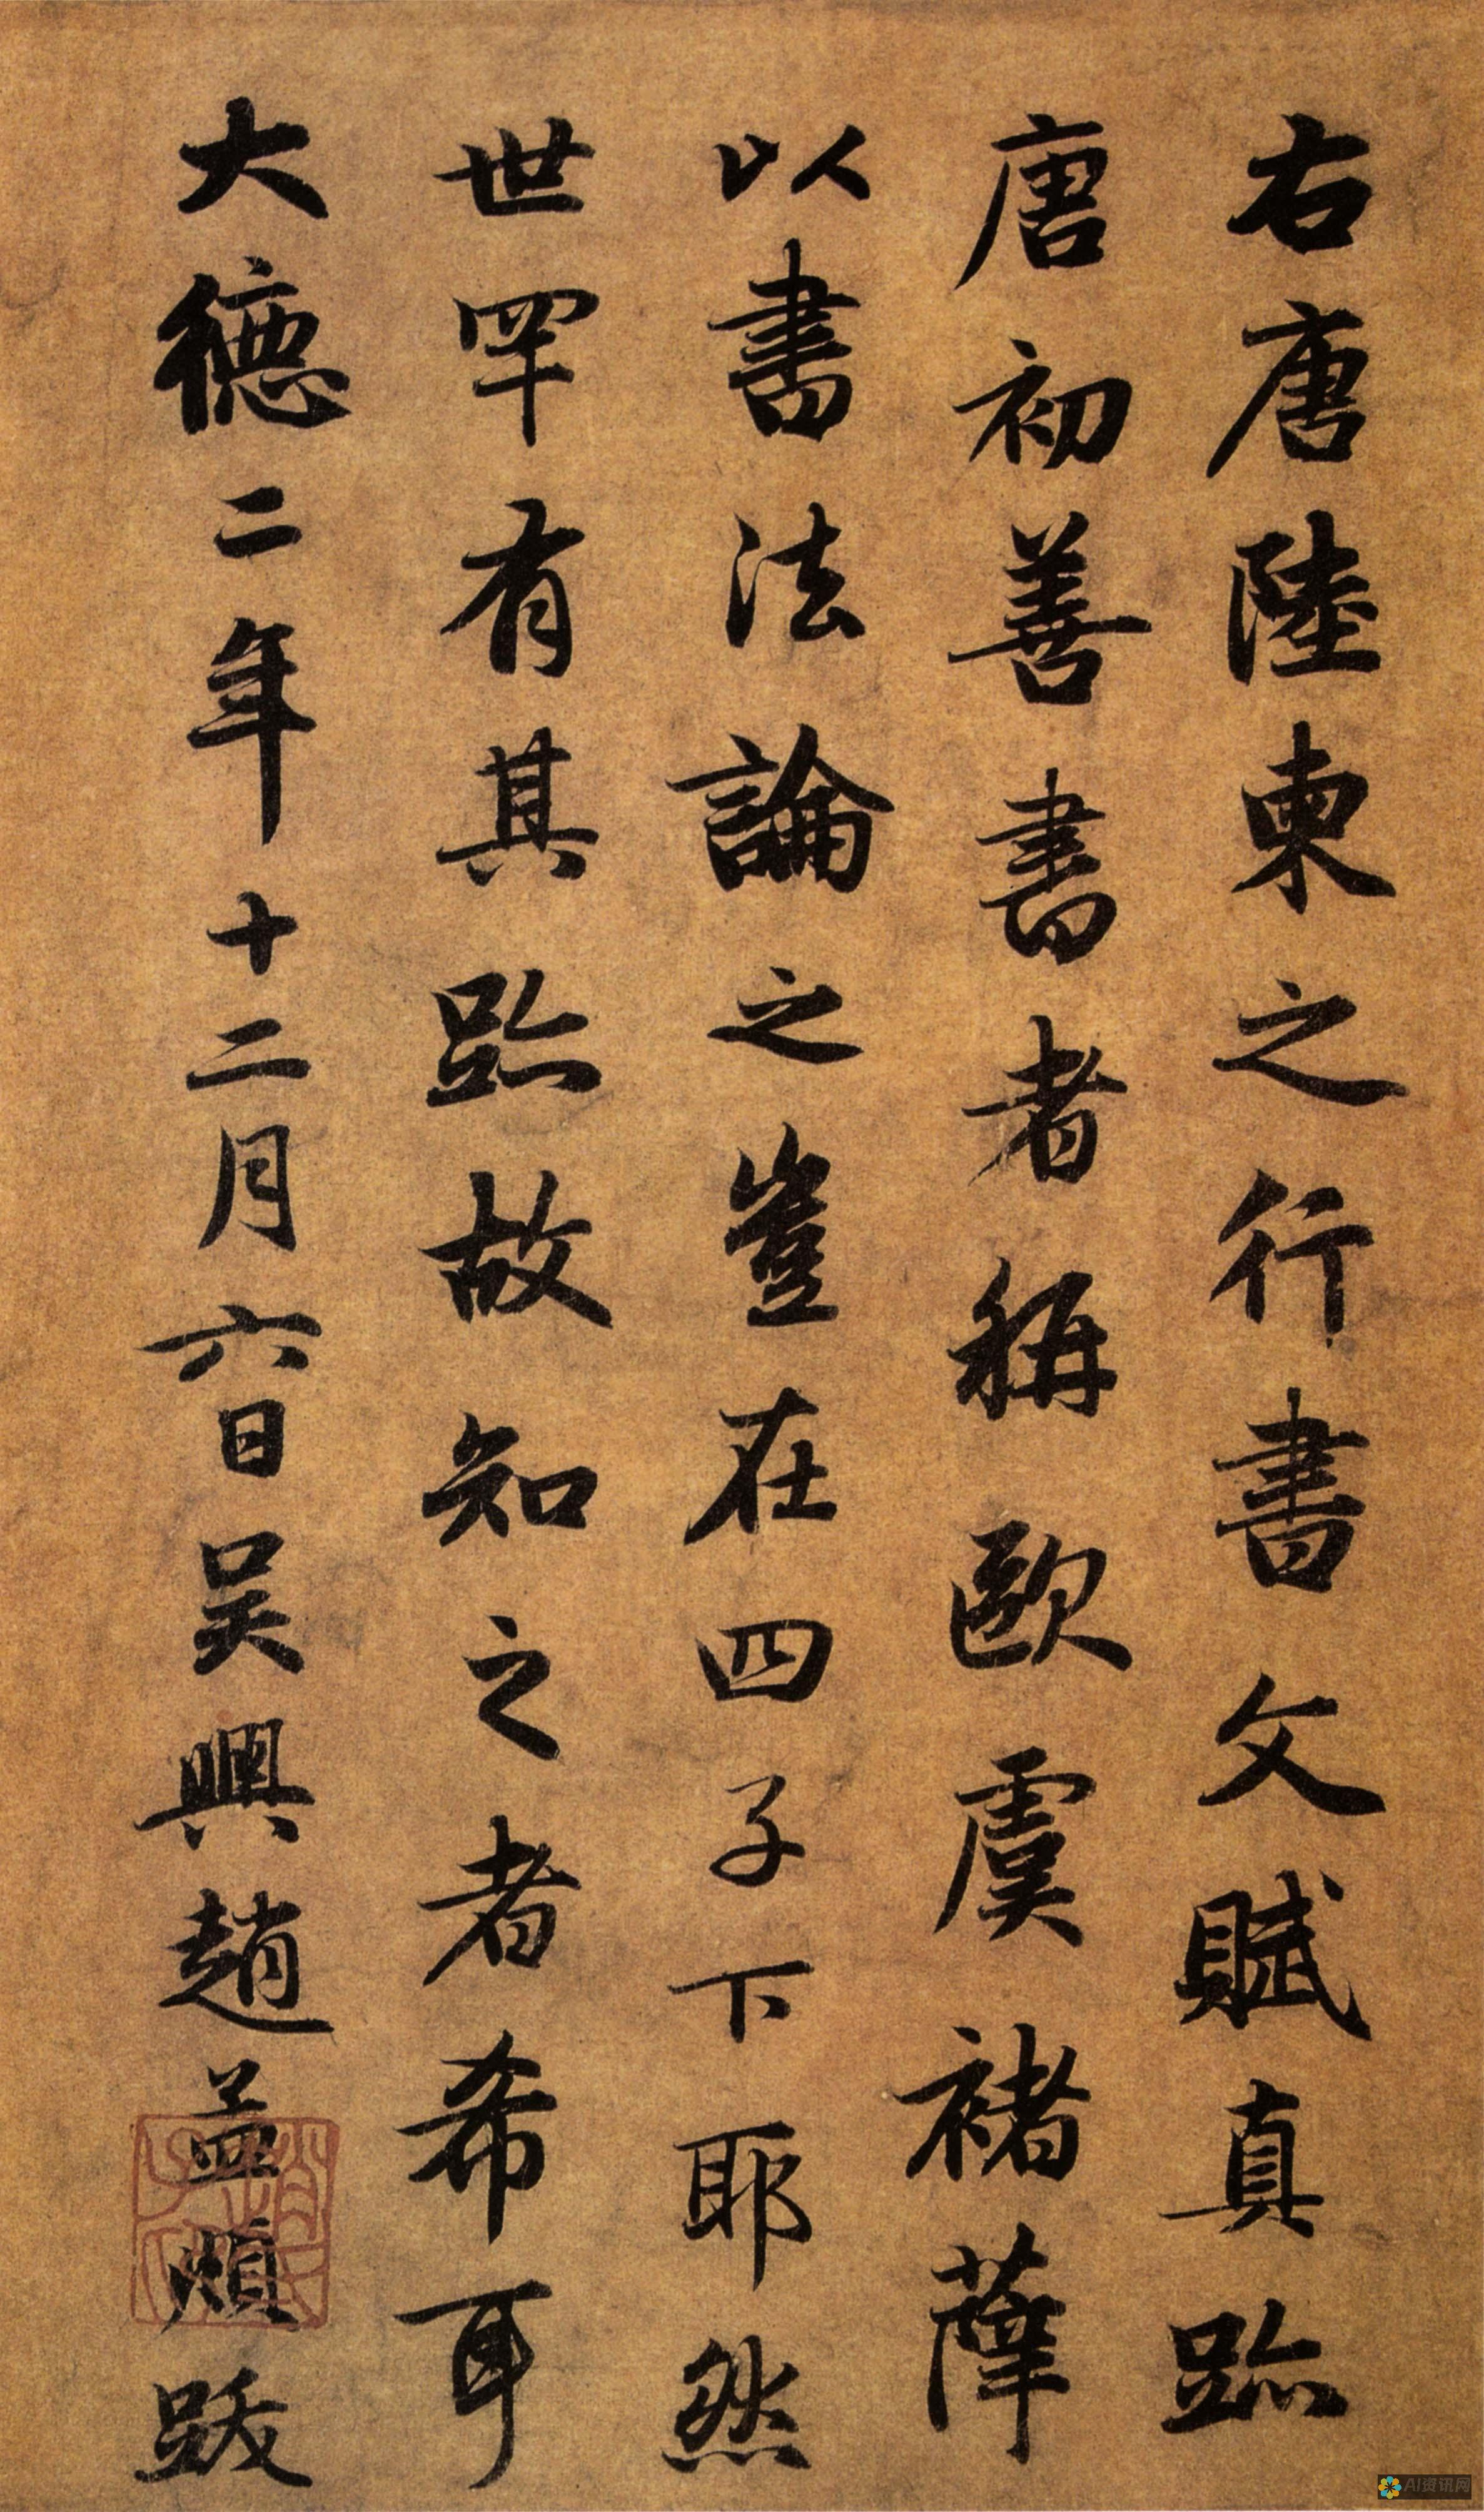 右唐陸柬之行書文賦真跡
唐初善書者稱歐虞褚薛
以書法論之豈在四子下耶然
世罕有其跡故知之者希耳
大德二年十二月六日吳興趙孟頫跋
趙氏子昂
AI资讯网